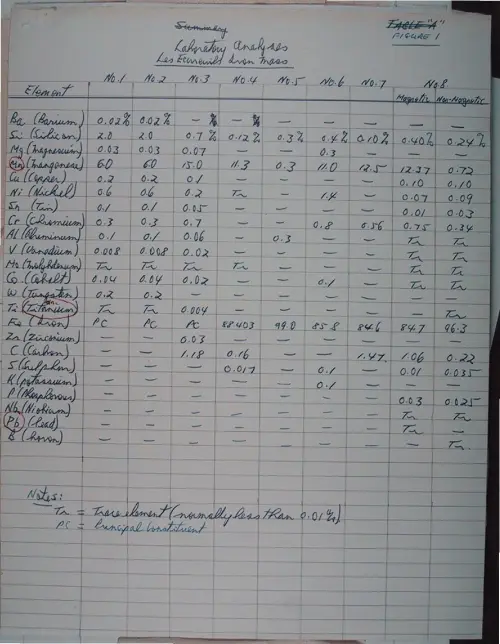 Summary
TABLE "A"
FIGURE 1
Laboratory Analyses
Les Ecureuils Iron Mass
Element No.1 No.2 No.3 No.4 No.5 No.6 No.7 No.8
Magnetic Non-Magnetic
Ba (Barium) 0.02% 0.02% — % — % — — — — —
Si (Silicon) 2.0 2.0 0.7% 0.12% 0.3% 0.4% 0.10% 0.40% 0.24%
Mg (Magnesium) 0.03 0.03 0.07 — — 0.3 — — —
Mn (Manganese) 6.0 6.0 15.0 11.3 0.3 11.0 12.5 12.57 0.72
Cu (Copper) 0.2 0.2 0.1 — — — — 0.10 0.10
Ni (Nickel) 0.6 0.6 0.2 Tr — 1.4 — 0.07 0.09
Sn (Tin) 0.1 0.1 0.05 — — — — 0.01 0.03
Cr (Chromium) 0.3 0.3 0.7 — — 0.8 0.56 0.75 0.34
Al (Aluminum) 0.1 0.1 0.06 — 0.3 — — Tr Tr
V (Vanadium) 0.008 0.008 0.02 — — — — Tr Tr
Mo (Molybdenum) Tr Tr Tr Tr — — — Tr Tr
Co (Cobalt) 0.04 0.04 0.02 — — 0.1 — Tr Tr
W (Tungsten) 0.2 0.2 — — — — — — —
Ti Tr Tr 0.004 — — — — — Tr
Fe (Iron) PC PC PC 88.403 99.0 85.8 84.6 84.7 96.3
Zn (Zirconium) — — 0.03 — — — — — —
C (Carbon) — — 1.18 0.16 — — 1.47 1.06 0.22
S (Sulphur) — — — 0.017 — 0.1 — 0.01 0.035
K (Potassium) — — — — — 0.1 — — —
P (Phosphorous) — — — — — — — 0.03 0.025
Nb (Niobium) — — — — — — — Tr Tr
Pb (Lead) — — — — — — — Tr —
B (Boron) — — — — — — — — Tr
Notes:
Tr = Trace element (normally less than 0.01%)
PC = Principal Constituent